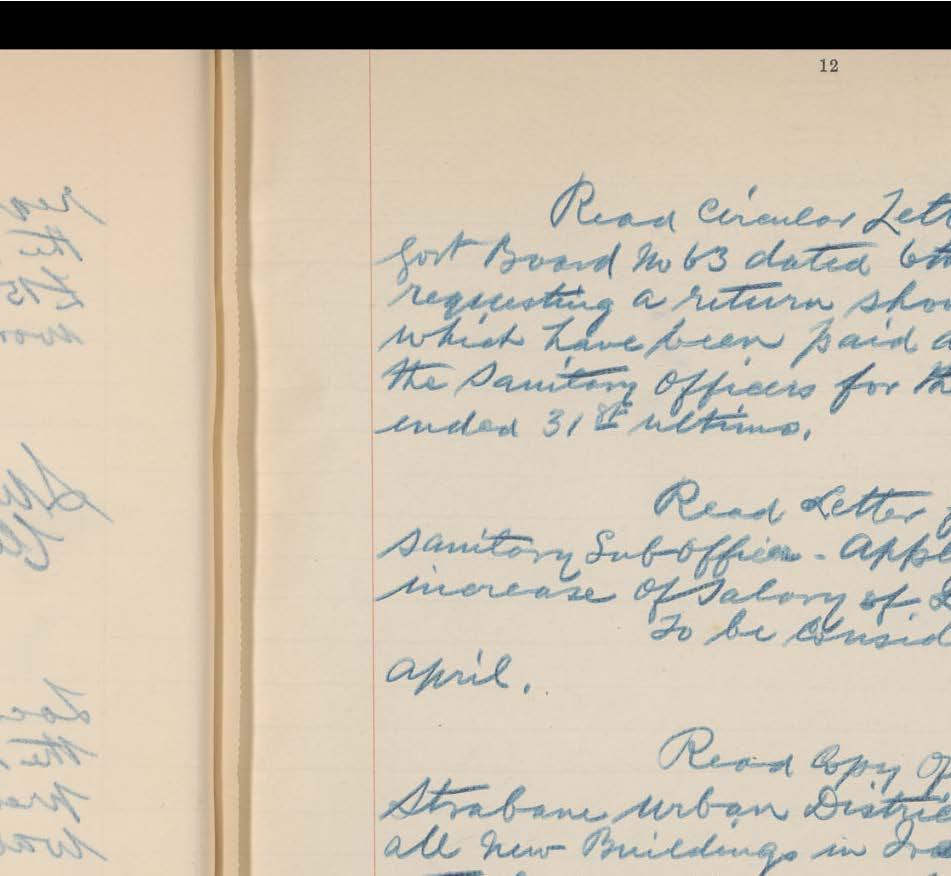 12
Read Circular Lett
Govt Board No 63 dated 6th
requesting a return show
which have been paid a
the Sanitary Officers for th
ended 31st ultimo.
Read Letter f
Sanitary Sub Officer - App
increase of Salary of
To be Consid
April.
Read Copy Of
Strabane Urban Distric
all New Buildings in